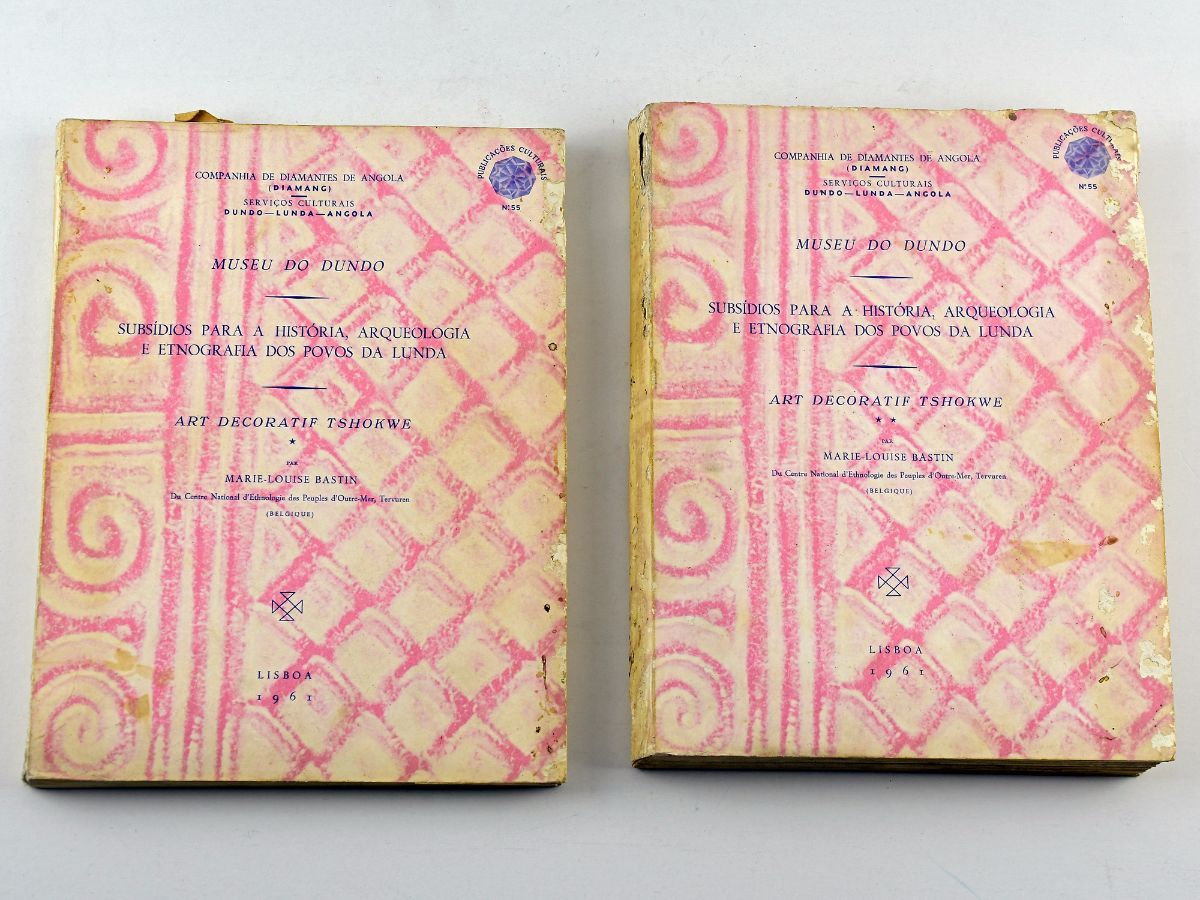 PUBLICAÇÕES CULTURAIS
Nº.55
COMPANHIA DE DIAMANTES DE ANGOLA
(DIAMANG)
SERVIÇOS CULTURAIS
DUNDO—LUNDA—ANGOLA
MUSEU DO DUNDO
SUBSÍDIOS PARA A HISTÓRIA, ARQUEOLOGIA
E ETNOGRAFIA DOS POVOS DA LUNDA
ART DECORATIF TSHOKWE
★
PAR
MARIE-LOUISE BASTIN
Du Centre National d'Ethnologie des Peuples d'Outre-Mer, Tervuren
(BELGIQUE)
LISBOA
1961
PUBLICAÇÕES CULTURAIS
Nº.55
COMPANHIA DE DIAMANTES DE ANGOLA
(DIAMANG)
SERVIÇOS CULTURAIS
DUNDO—LUNDA—ANGOLA
MUSEU DO DUNDO
SUBSÍDIOS PARA A HISTÓRIA, ARQUEOLOGIA
E ETNOGRAFIA DOS POVOS DA LUNDA
ART DECORATIF TSHOKWE
★ ★
PAR
MARIE-LOUISE BASTIN
Du Centre National d'Ethnologie des Peuples d'Outre-Mer, Tervuren
(BELGIQUE)
LISBOA
1961